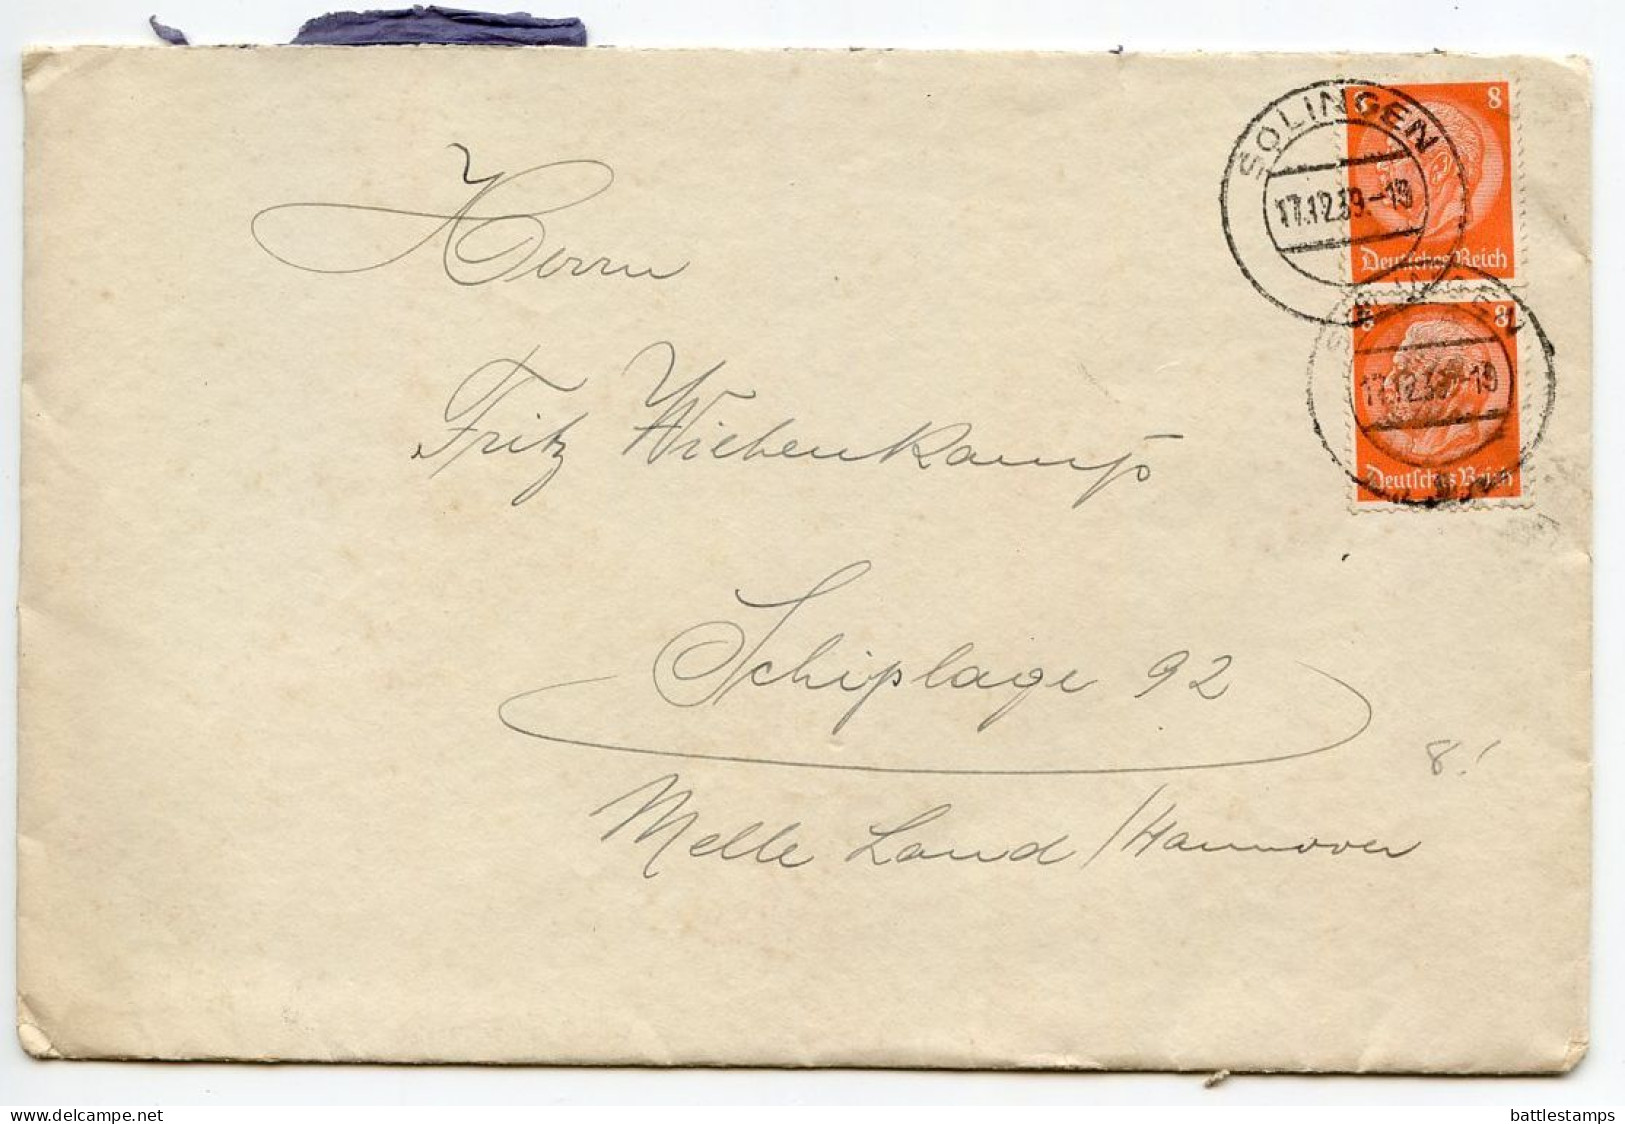 SOLINGEN
17.12.39.-19
8
Deutsches Reich
SOLINGEN
17.12.39.-19
8 8
Deutsches Reich
Herrn
Fritz Wiebenkamp
Schiplage 92
8!
Melle Land / Hannover
delcampe.net
battlestamps